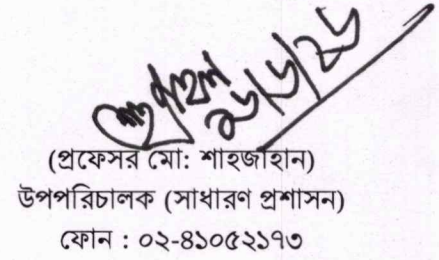 (প্রফেসর মো: শাহজাহান)
উপপরিচালক (সাধারণ প্রশাসন)
ফোন : ০২-৪১০৫২১৭৩